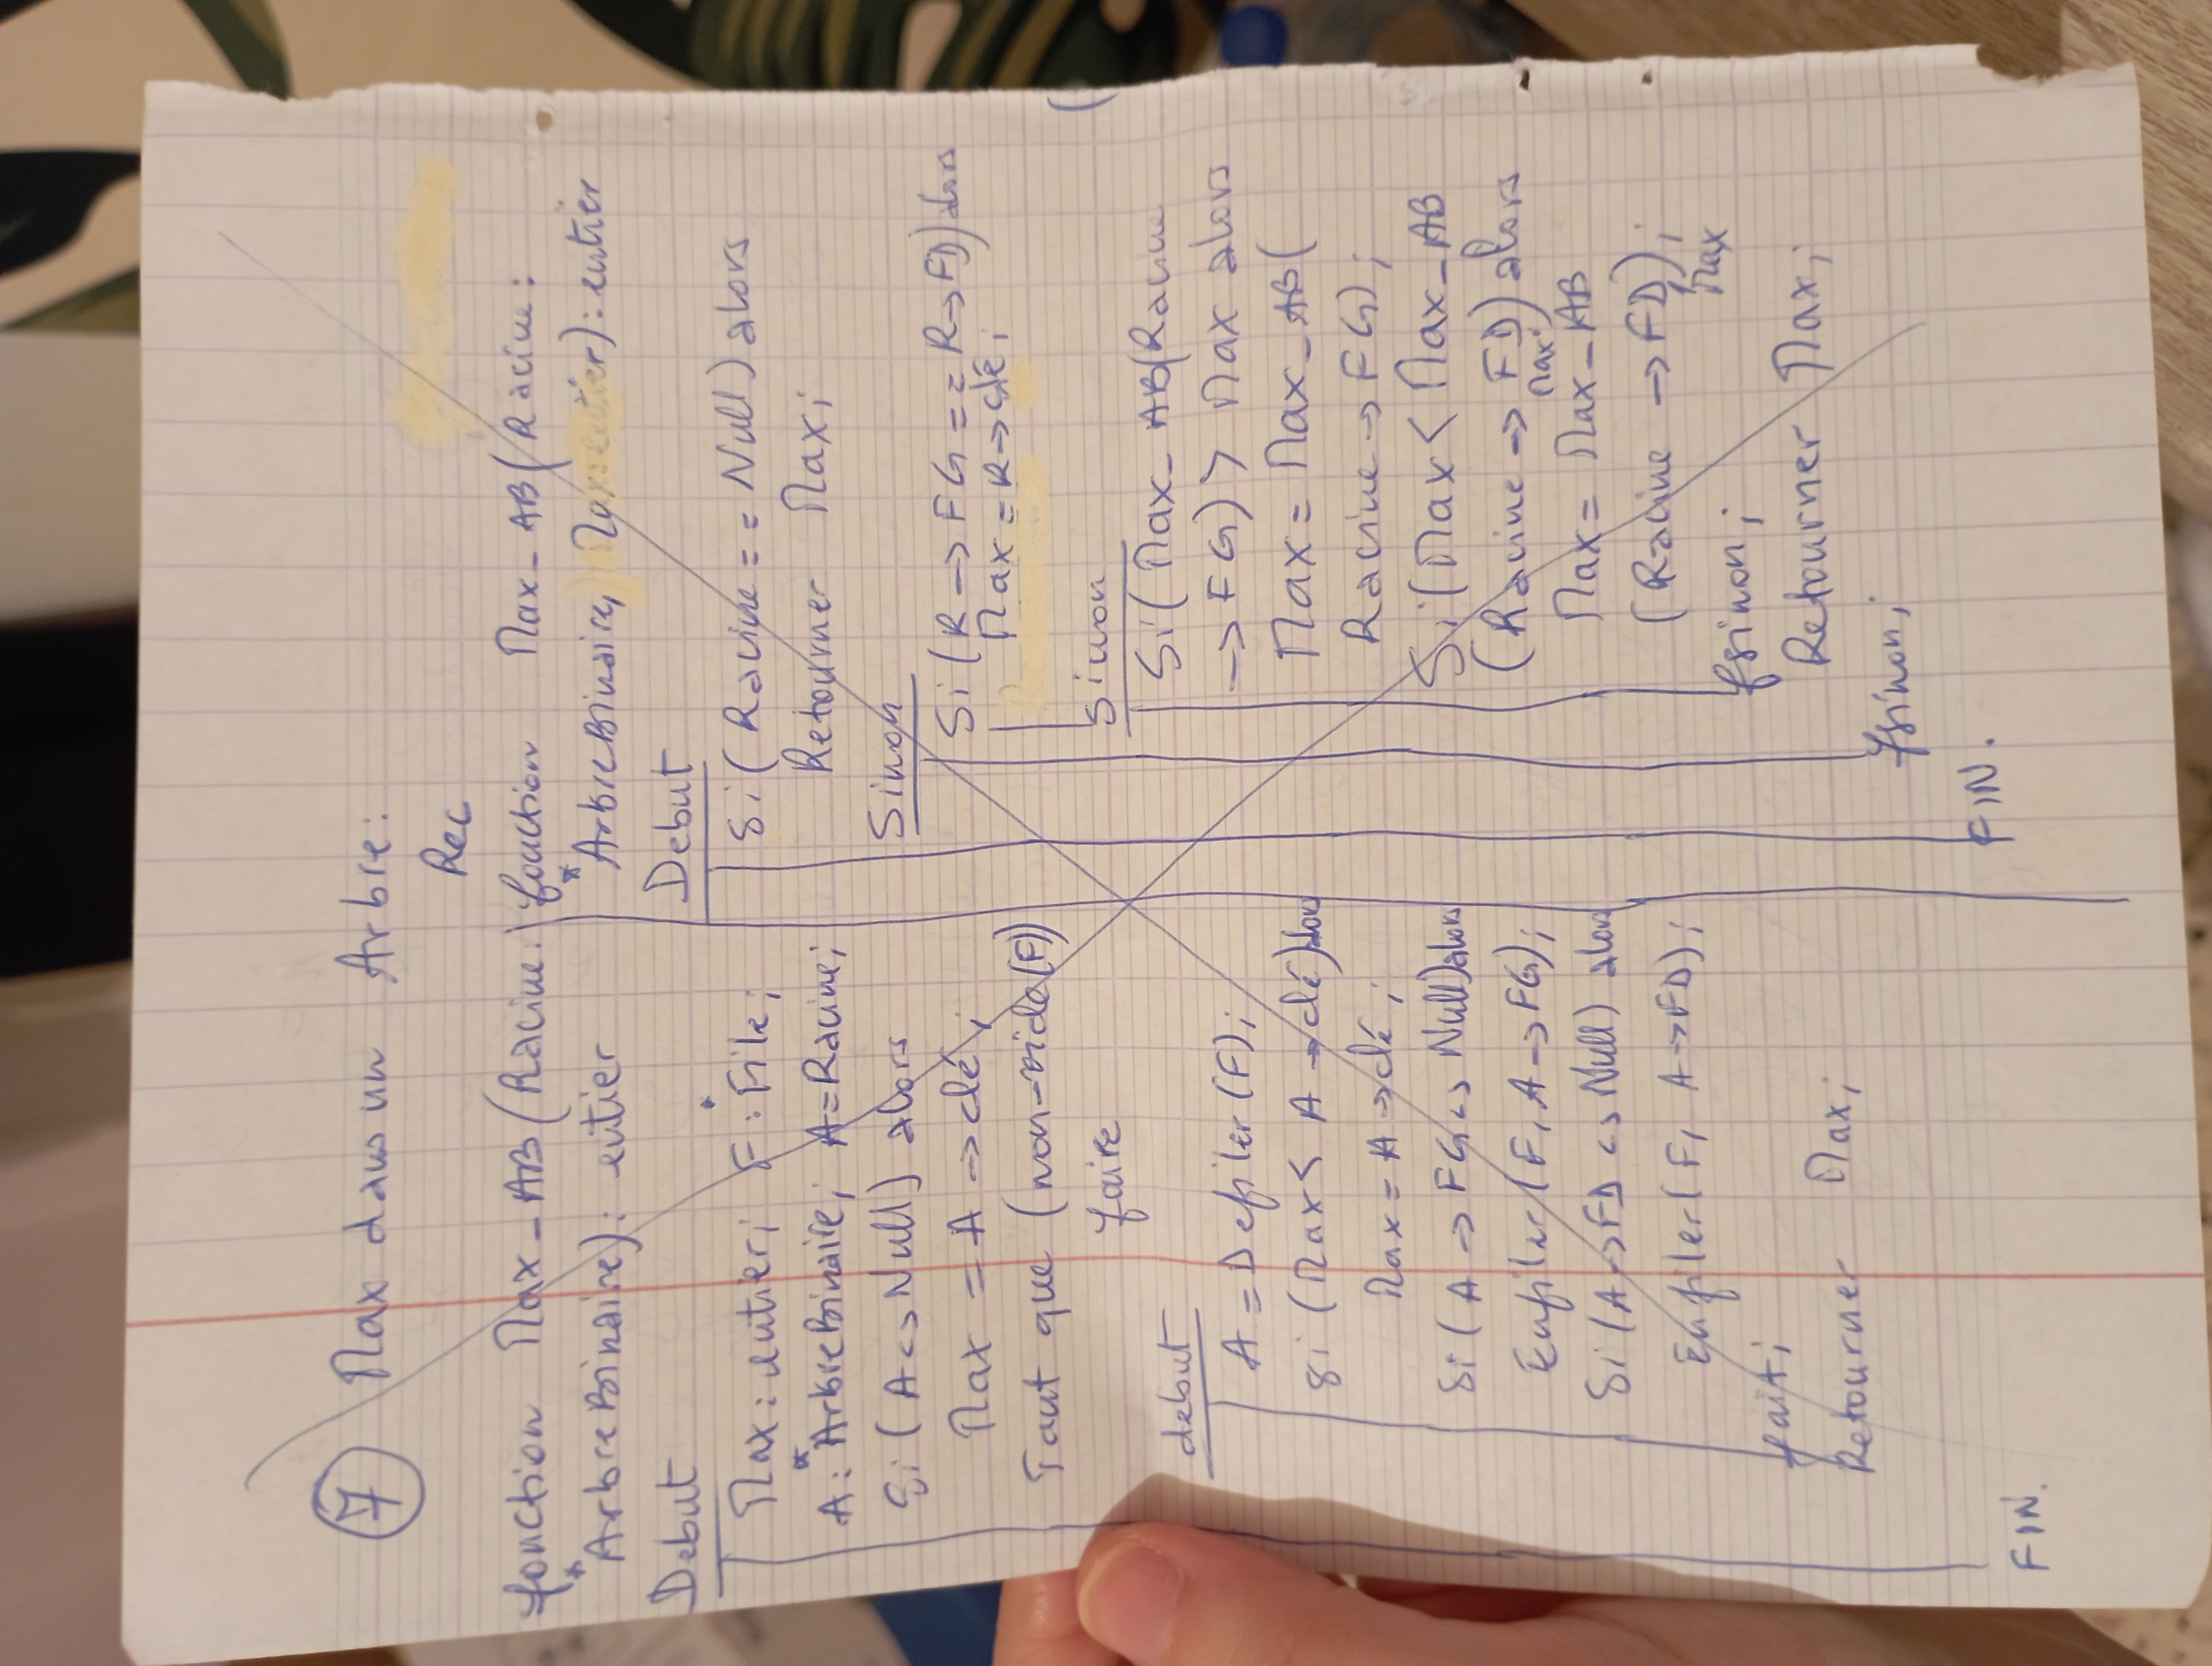 7 Max dans un Arbre:
fonction Max_AB(Racine:
*ArbreBinaire): entier
Debut
Max: entier; F: File;
A: *ArbreBinaire; A=Racine;
Si (A <> Null) alors
Max = A → clé;
Tant que (non-vide(F))
faire
debut
A = Defiler(F);
Si (Max < A → clé) alors
Max = A → clé;
Si (A → FG <> Null) alors
Enfiler(F, A → FG);
Si (A → FD <> Null) alors
Enfiler(F, A → FD);
fait;
Retourner Max;
FIN.
Rec
fonction Max_AB(Racine:
*ArbreBinaire, Max: entier): entier
Debut
Si (Racine == Null) alors
Retourner Max;
Sinon
Si (R → FG == R → FD) alors
Max = R → clé;
Sinon
Si (Max_AB(Racine
→ FG) > Max alors
Max = Max_AB(
Racine → FG);
Si (Max < Max_AB
(Racine → FD) alors
Max
Max = Max_AB
(Racine → FD,);
Max
fsinon;
Retourner Max;
fsinon;
FIN.